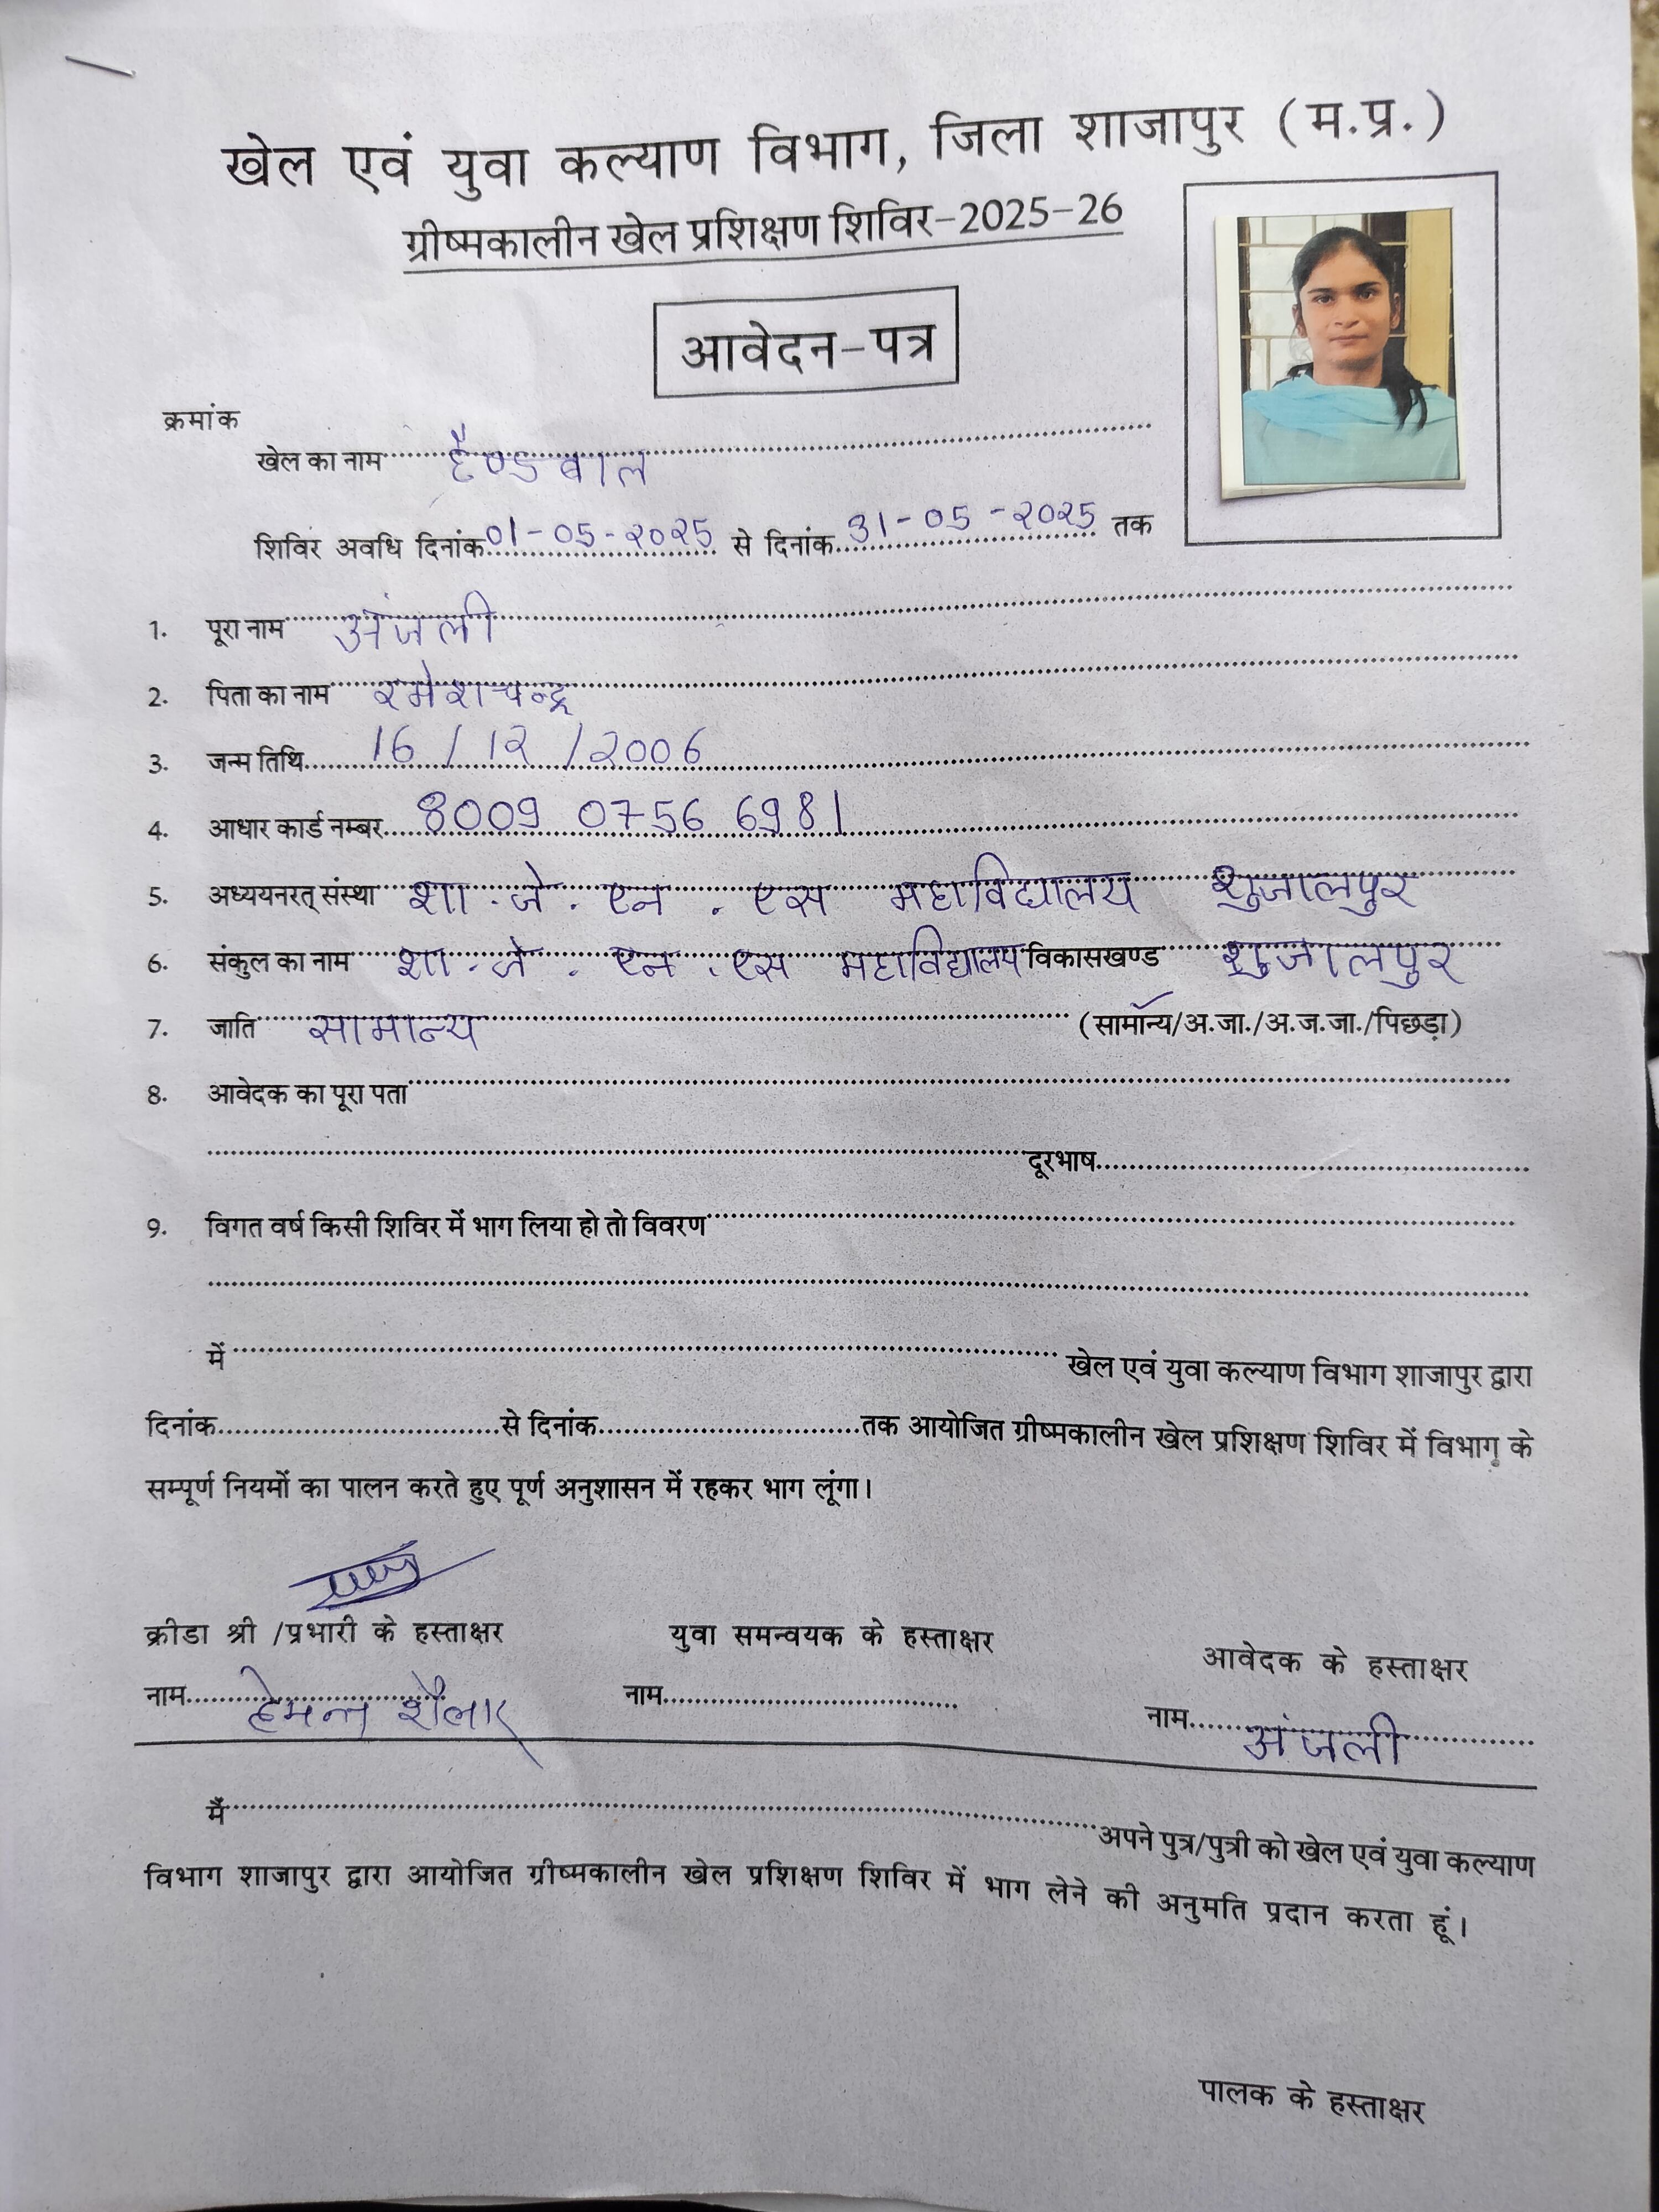 खेल एवं युवा कल्याण विभाग, जिला शाजापुर (म.प्र.)
ग्रीष्मकालीन खेल प्रशिक्षण शिविर-2025-26
आवेदन-पत्र
क्रमांक
खेल का नाम हैण्डबाल
शिविर अवधि दिनांक 01-05-2025 से दिनांक 31-05-2025 तक
1. पूरा नाम अंजली
2. पिता का नाम रमेशचन्द्र
3. जन्म तिथि 16/12/2006
4. आधार कार्ड नम्बर 8009 0756 6981
5. अध्ययनरत् संस्था शा. जे. एन. एस महाविद्यालय शुजालपुर
6. संकुल का नाम शा. जे. एन. एस महाविद्यालय विकासखण्ड शुजालपुर
7. जाति सामान्य (सामान्य/अ.जा./अ.ज.जा./पिछड़ा)
8. आवेदक का पूरा पता
दूरभाष
9. विगत वर्ष किसी शिविर में भाग लिया हो तो विवरण
में खेल एवं युवा कल्याण विभाग शाजापुर द्वारा
दिनांक से दिनांक तक आयोजित ग्रीष्मकालीन खेल प्रशिक्षण शिविर में विभाग के
सम्पूर्ण नियमों का पालन करते हुए पूर्ण अनुशासन में रहकर भाग लूंगा।
क्रीडा श्री /प्रभारी के हस्ताक्षर युवा समन्वयक के हस्ताक्षर आवेदक के हस्ताक्षर
नाम हेमन्त शैलार नाम नाम अंजली
मैं अपने पुत्र/पुत्री को खेल एवं युवा कल्याण
विभाग शाजापुर द्वारा आयोजित ग्रीष्मकालीन खेल प्रशिक्षण शिविर में भाग लेने की अनुमति प्रदान करता हूं।
पालक के हस्ताक्षर